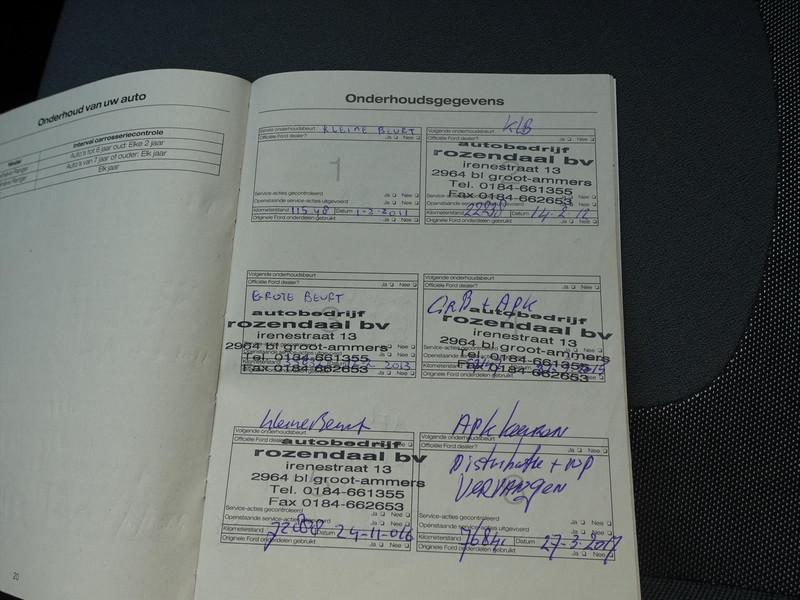 Onderhoud van uw auto
Interval carrosseriecontrole
Auto's tot 6 jaar oud: Elke 2 jaar
Auto's van 7 jaar of ouder: Elk jaar
Elk jaar
20
Onderhoudsgegevens
Eerste onderhoudsbeurt KLEINE BEURT
Officiële Ford dealer? Ja Nee
1
Service-acties gecontroleerd Ja Nee
Openstaande service-acties uitgevoerd Ja Nee
Kilometerstand 11548 Datum 1-2-2011
Originele Ford onderdelen gebruikt Ja Nee
Volgende onderhoudsbeurt KLB
Officiële Ford dealer? Ja Nee
autobedrijf
rozendaal bv
irenestraat 13
2964 bl groot-ammers
Tel. 0184-661355
Fax 0184-662653
Service-acties gecontroleerd
Openstaande service-acties uitgevoerd
Kilometerstand Datum 14-2-12
Originele Ford onderdelen gebruikt Ja Nee
Volgende onderhoudsbeurt
Officiële Ford dealer? Ja Nee
GROTE BEURT
autobedrijf
rozendaal bv
irenestraat 13
2964 bl groot-ammers
Tel. 0184-661355
Fax 0184-662653
2013
Volgende onderhoudsbeurt
Officiële Ford dealer? Ja Nee
GRB + APK
autobedrijf
rozendaal bv
irenestraat 13
2964 bl groot-ammers
Tel. 0184-661355
Fax 0184-662653
Originele Ford onderdelen gebruikt Ja Nee
Kleine Beurt
Volgende onderhoudsbeurt
Officiële Ford dealer?
autobedrijf
rozendaal bv
irenestraat 13
2964 bl groot-ammers
Tel. 0184-661355
Fax 0184-662653
Service-acties gecontroleerd Ja Nee
Openstaande service-acties Ja Nee
Kilometerstand Datum 24-11-016
Originele Ford onderdelen gebruikt Ja Nee
APK
Volgende onderhoudsbeurt
Officiële Ford dealer? Ja Nee
Distributie + WP
VERVANGEN
Service-acties gecontroleerd
Openstaande service-acties uitgevoerd Ja Nee
Kilometerstand Datum 27-3-2017
Originele Ford onderdelen gebruikt Ja Nee